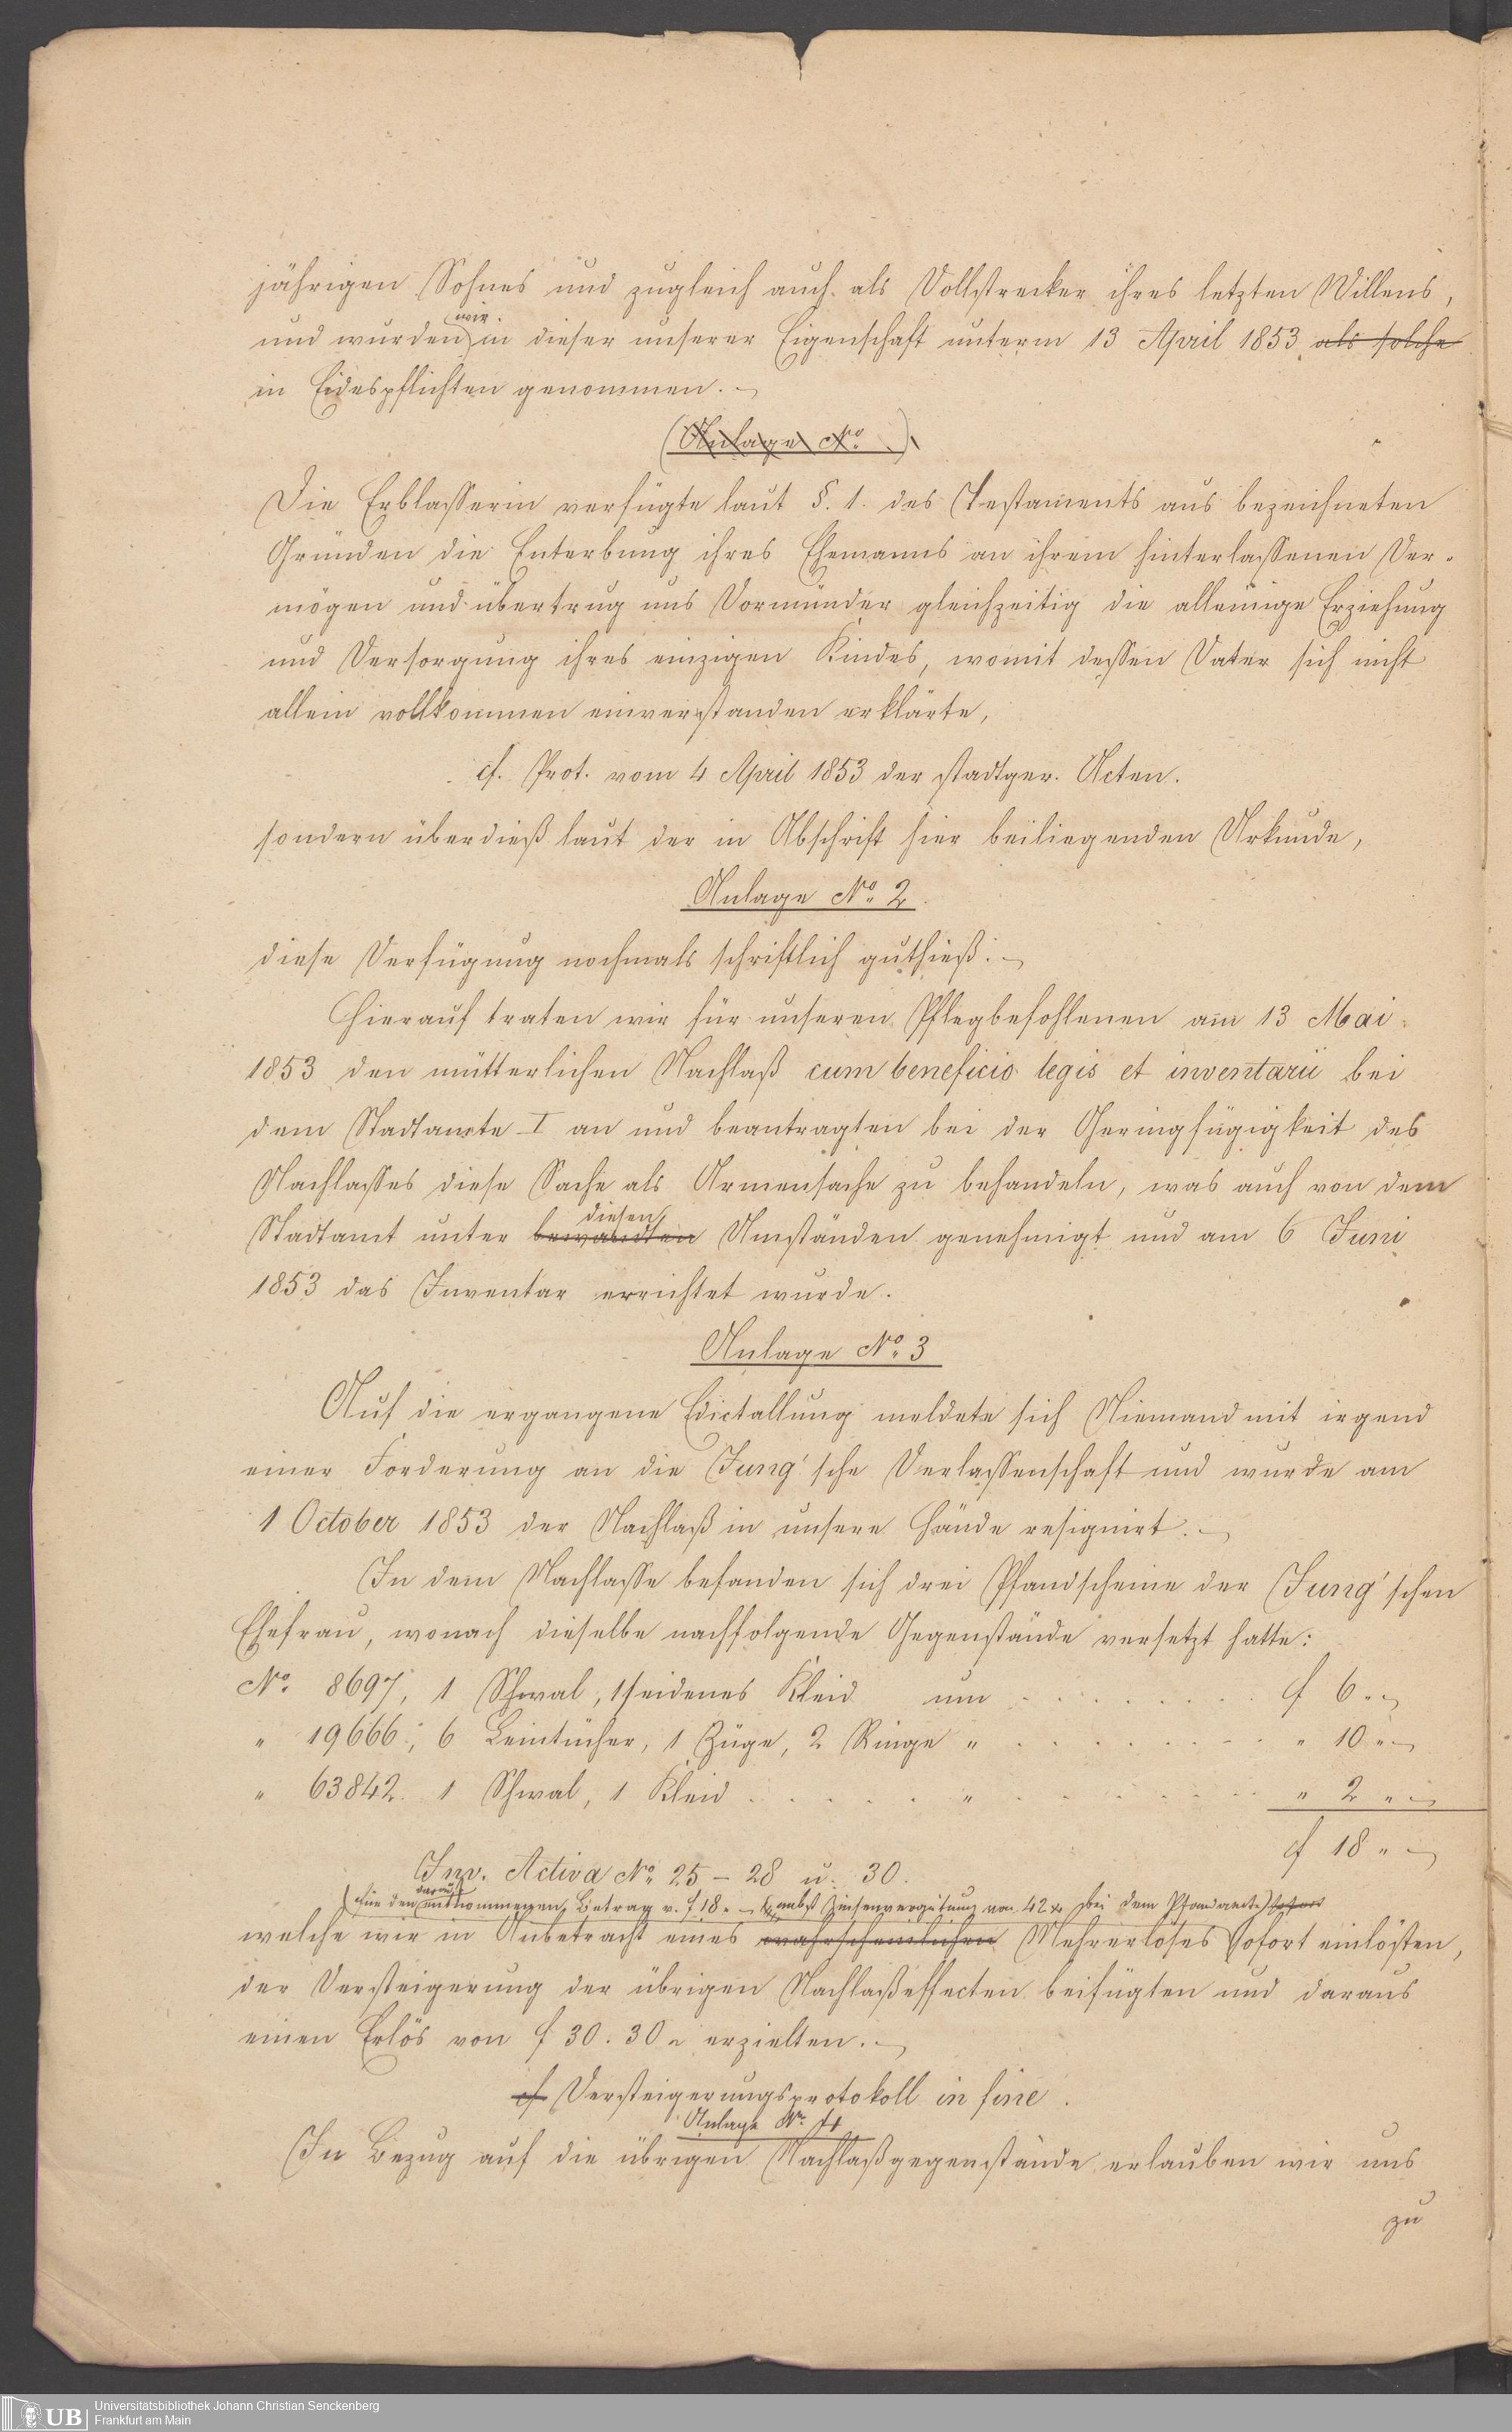 jährigen Sohnes und zugleich auch als Vollstrecker ihres letzten Willens,
wir
und wurden in dieser unserer Eigenschaft unterm 13 April 1853 als solche
in Eidespflichten genommen. –
(Anlage No. )
Die Erblasserin verfügte laut §. 1. des Testaments aus bezeichneten
Gründen die Enterbung ihres Ehemanns an ihrem hinterlassenen Ver-
mögen und übertrug uns Vormünder gleichzeitig die alleinige Erziehung
und Versorgung ihres einzigen Kindes, womit dessen Vater sich nicht
allein vollkommen einverstanden erklärte,
cf. Prot. vom 4 April 1853 der stadtger. Acten.
sondern überdieß laut der in Abschrift hier beiliegenden Urkunde,
Anlage No. 2.
diese Verfügung nochmals schriftlich guthieß. –
Hierauf traten wir für unseren Pflegbefohlenen am 13 Mai
1853 den mütterlichen Nachlaß cum beneficio legis et inventarii bei
dem Stadtamte I an und beantragten bei der Geringfügigkeit des
Nachlasses diese Sache als Armensache zu behandeln, was auch von dem
diesen
Stadtamt unter bewandten Umständen genehmigt und am 6 Juni
1853 das Inventar errichtet wurde.
Anlage No. 3
Auf die ergangene Edictallung meldete sich Niemand mit irgend
einer Forderung an die Jung'sche Verlassenschaft und wurde am
1 October 1853 der Nachlaß in unsere Hände resignirt. –
In dem Nachlasse befanden sich drei Pfandscheine der Jung'schen
Ehefrau, wonach dieselbe nachfolgende Gegenstände versetzt hatte:
No. 8697, 1 Schwal, 1 seidenes Kleid um . . . . . . . f 6 „ –
„ 19666; 6 Leintücher, 1 Züge, 2 Ringe „ . . . . . . . „ 10 „ –
„ 63842. 1 Schwal, 1 Kleid . . . . . „ . . . . . . . „ 2 „ –
f 18 „ –
Inv. Activa No. 25 – 28 u. 30.
darauf
für den entnommenen Betrag v. f 18 „ – nebst Zinsenvergütung von 42 x bei dem Pfandamte sofort
welche wir in Anbetracht eines wahrscheinlichen Mehrerlöses sofort einlösten,
der Versteigerung der übrigen Nachlaßeffecten beifügten und daraus
einen Erlös von f 30. 30 x erzielten. –
cf Versteigerungsprotokoll in fine.
Anlage No. 4
In Bezug auf die übrigen Nachlaßgegenstände erlauben wir uns
zu
UB
Universitätsbibliothek Johann Christian Senckenberg
Frankfurt am Main